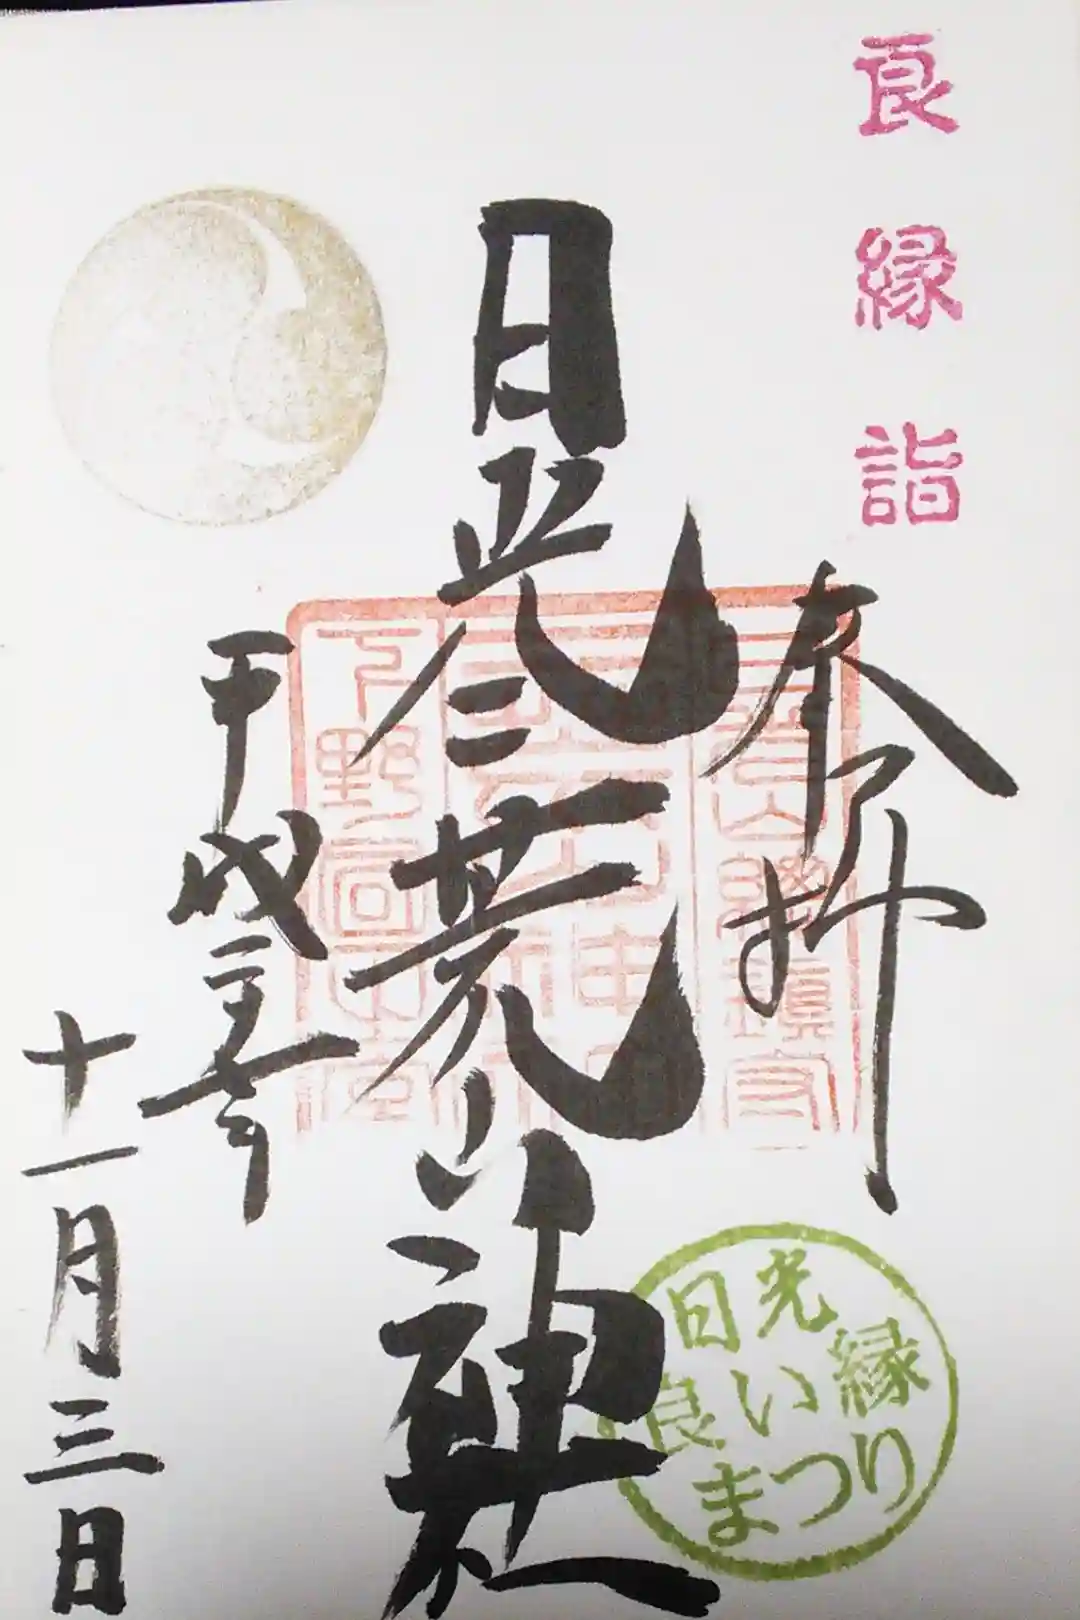 良縁詣
奉拝
日光二荒山神社
平成二十七年
十一月三日
日光
良い縁
まつり